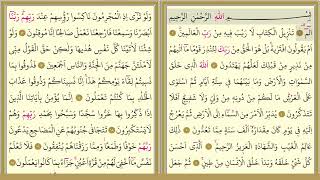 بِسْمِ اللّٰهِ الرَّحْمٰنِ الرَّحِيمِ
الٓمٓ تَنْزِيلُ الْكِتَابِ لَا رَيْبَ فِيهِ مِنْ رَبِّ الْعَالَمِينَ
اَمْ يَقُولُونَ افْتَرٰيهُ بَلْ هُوَ الْحَقُّ مِنْ رَبِّكَ لِتُنْذِرَ قَوْمًا مَٓا اَتٰيهُمْ
مِنْ نَذِيرٍ مِنْ قَبْلِكَ لَعَلَّهُمْ يَهْتَدُونَ اَللّٰهُ الَّذِي خَلَقَ
السَّمٰوَاتِ وَالْاَرْضَ وَمَا بَيْنَهُمَا فِي سِتَّةِ اَيَّامٍ ثُمَّ اسْتَوٰى
عَلَى الْعَرْشِ مَا لَكُمْ مِنْ دُونِهِ مِنْ وَلِيٍّ وَلَا شَفِيعٍ اَفَلَا
تَتَذَكَّرُونَ يُدَبِّرُ الْاَمْرَ مِنَ السَّمَٓاءِ اِلَى الْاَرْضِ ثُمَّ يَعْرُجُ
اِلَيْهِ فِي يَوْمٍ كَانَ مِقْدَارُهُٓ اَلْفَ سَنَةٍ مِمَّا تَعُدُّونَ
ذٰلِكَ عَالِمُ الْغَيْبِ وَالشَّهَادَةِ الْعَزِيزُ الرَّحِيمُ اَلَّذِٓي اَحْسَنَ
كُلَّ شَيْءٍ خَلَقَهُ وَبَدَاَ خَلْقَ الْاِنْسَانِ مِنْ طِينٍ ثُمَّ جَعَلَ
وَلَوْ تَرٰٓى اِذِ الْمُجْرِمُونَ نَاكِسُوا رُؤُسِهِمْ عِنْدَ رَبِّهِمْ رَبَّنَٓا
اَبْصَرْنَا وَسَمِعْنَا فَارْجِعْنَا نَعْمَلْ صَالِحًا اِنَّا مُوقِنُونَ وَلَوْ
شِئْنَا لَاٰتَيْنَا كُلَّ نَفْسٍ هُدٰيهَا وَلٰكِنْ حَقَّ الْقَوْلُ مِنِّي
لَاَمْلَـَٔنَّ جَهَنَّمَ مِنَ الْجِنَّةِ وَالنَّاسِ اَجْمَعِينَ
فَذُوقُوا بِمَا نَسِيتُمْ لِقَٓاءَ يَوْمِكُمْ هٰذَا اِنَّا نَسِينَاكُمْ وَذُوقُوا عَذَابَ
الْخُلْدِ بِمَا كُنْتُمْ تَعْمَلُونَ اِنَّمَا يُؤْمِنُ بِاٰيَاتِنَا الَّذِينَ
اِذَا ذُكِّرُوا بِهَا خَرُّوا سُجَّدًا وَسَبَّحُوا بِحَمْدِ رَبِّهِمْ وَهُمْ
لَا يَسْتَكْبِرُونَ تَتَجَافٰى جُنُوبُهُمْ عَنِ الْمَضَاجِعِ يَدْعُونَ
رَبَّهُمْ خَوْفًا وَطَمَعًا وَمِمَّا رَزَقْنَاهُمْ يُنْفِقُونَ فَلَا تَعْلَمُ
نَفْسٌ مَٓا اُخْفِيَ لَهُمْ مِنْ قُرَّةِ اَعْيُنٍ جَزَٓاءً بِمَا كَانُوا يَعْمَلُونَ